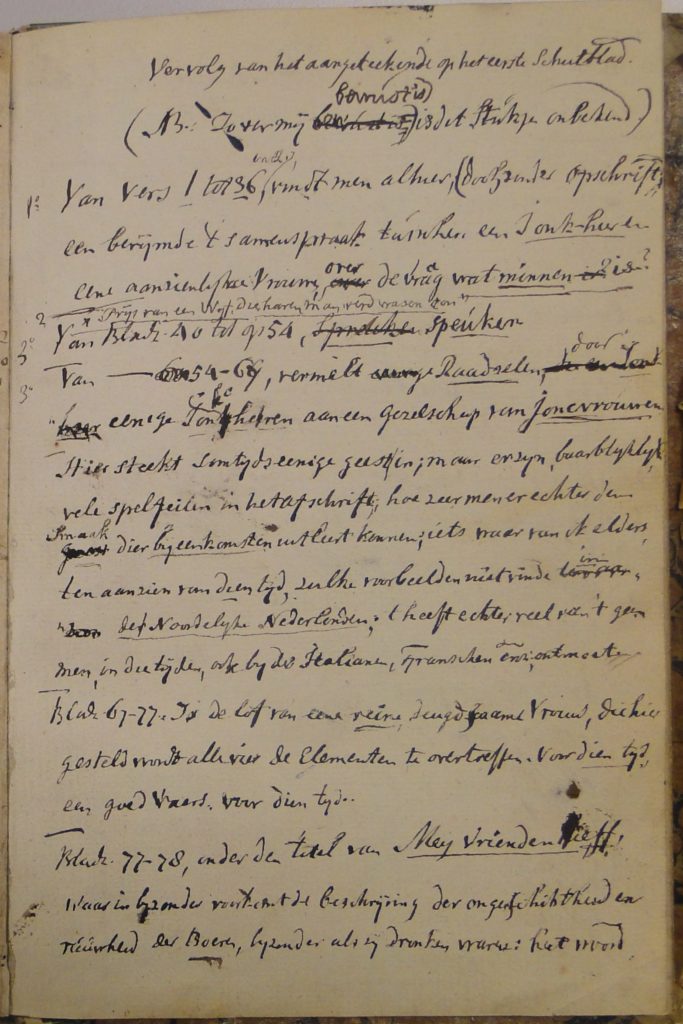 Vervolg van het aangeteekende op het eerste Schutblad.
bewust is)
(NB: Zo ver mij is dit Stukje onbekend)
1° Van vers 1 tot 36, vindt men alhier, (doch zonder opschrift,
een berijmde t'samenspraak tusschen een Jonk-heer en
eene aanzienlijke Vrouwe, over de vrag wat minnen is?
2° Prijs van een Wijf, die haren man
Van Bladz. 40 tot op 54, Spreuken speuken
3° Van — 54-67, vermelt Raadselen, door
eenige Jonkheren aan een gezelschap van Joncvrouwen
Hier steekt somtyds eenige geest in; maar er zyn, baarblykelyk
vele spelfeilen in het afschrift; hoe zeer men er echter den
Smaak dier byeenkomsten uit leert kennen; iets waar van ik elders,
ten aanzien van dien tyd, zulke voorbeelden niet vinde in
de Noordelyke Nederlanden; t heeft echter veel van 't geen
men, in die tyden, ook by de Italianen, Franschen enz. ontmoet
Bladz. 67-77. Is de lof van eene reine, deugdsaame Vrouw, die hier
gesteld wordt alle vier de Elementen te overtreffen. Voor dien tyd,
een goed Vaers. voor dien tyd.
Bladz. 77-78, onder den titel van Mey vrienden lieff;
waar in byzonder voorkomt de beschryving der ongeschiktheid en
ruuwheid der Boeren, byzonder als zy dronken waren: het woord